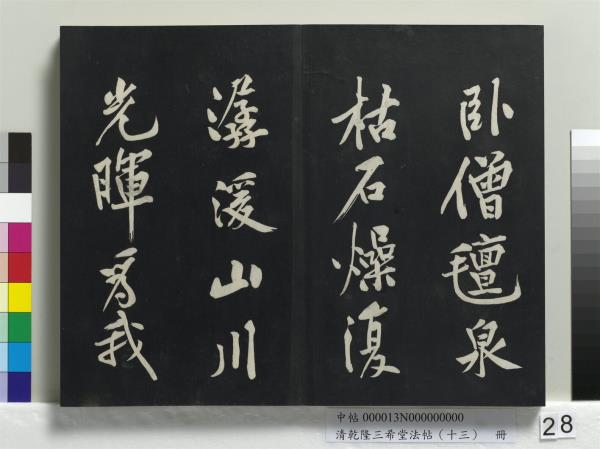 卧僧氊泉
枯石燥復
潺湲山川
光暉為我
中帖 000013N000000000
清乾隆三希堂法帖（十三） 冊
28